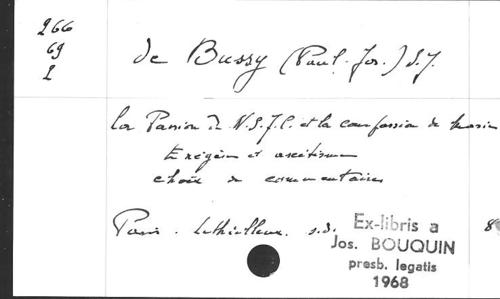 266
69
2
de Bussy (Paul-Jos.) S.J.
La Passion de N.S.J.C. et la compassion de Marie
Exégèse et ascétisme
choix de commentaires
Paris. Lethielleux. s.d. 8
Ex-libris a
Jos. BOUQUIN
presb. legatis
1968